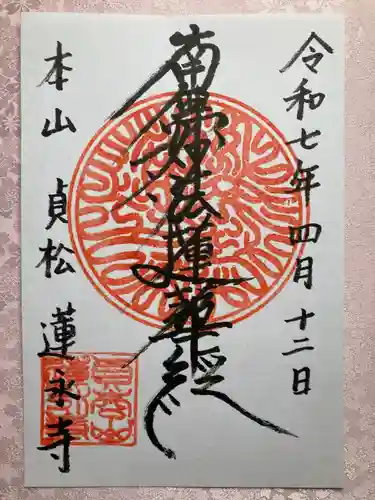 令和七年四月十二日
南無妙法蓮華経
本山 貞松 蓮永寺